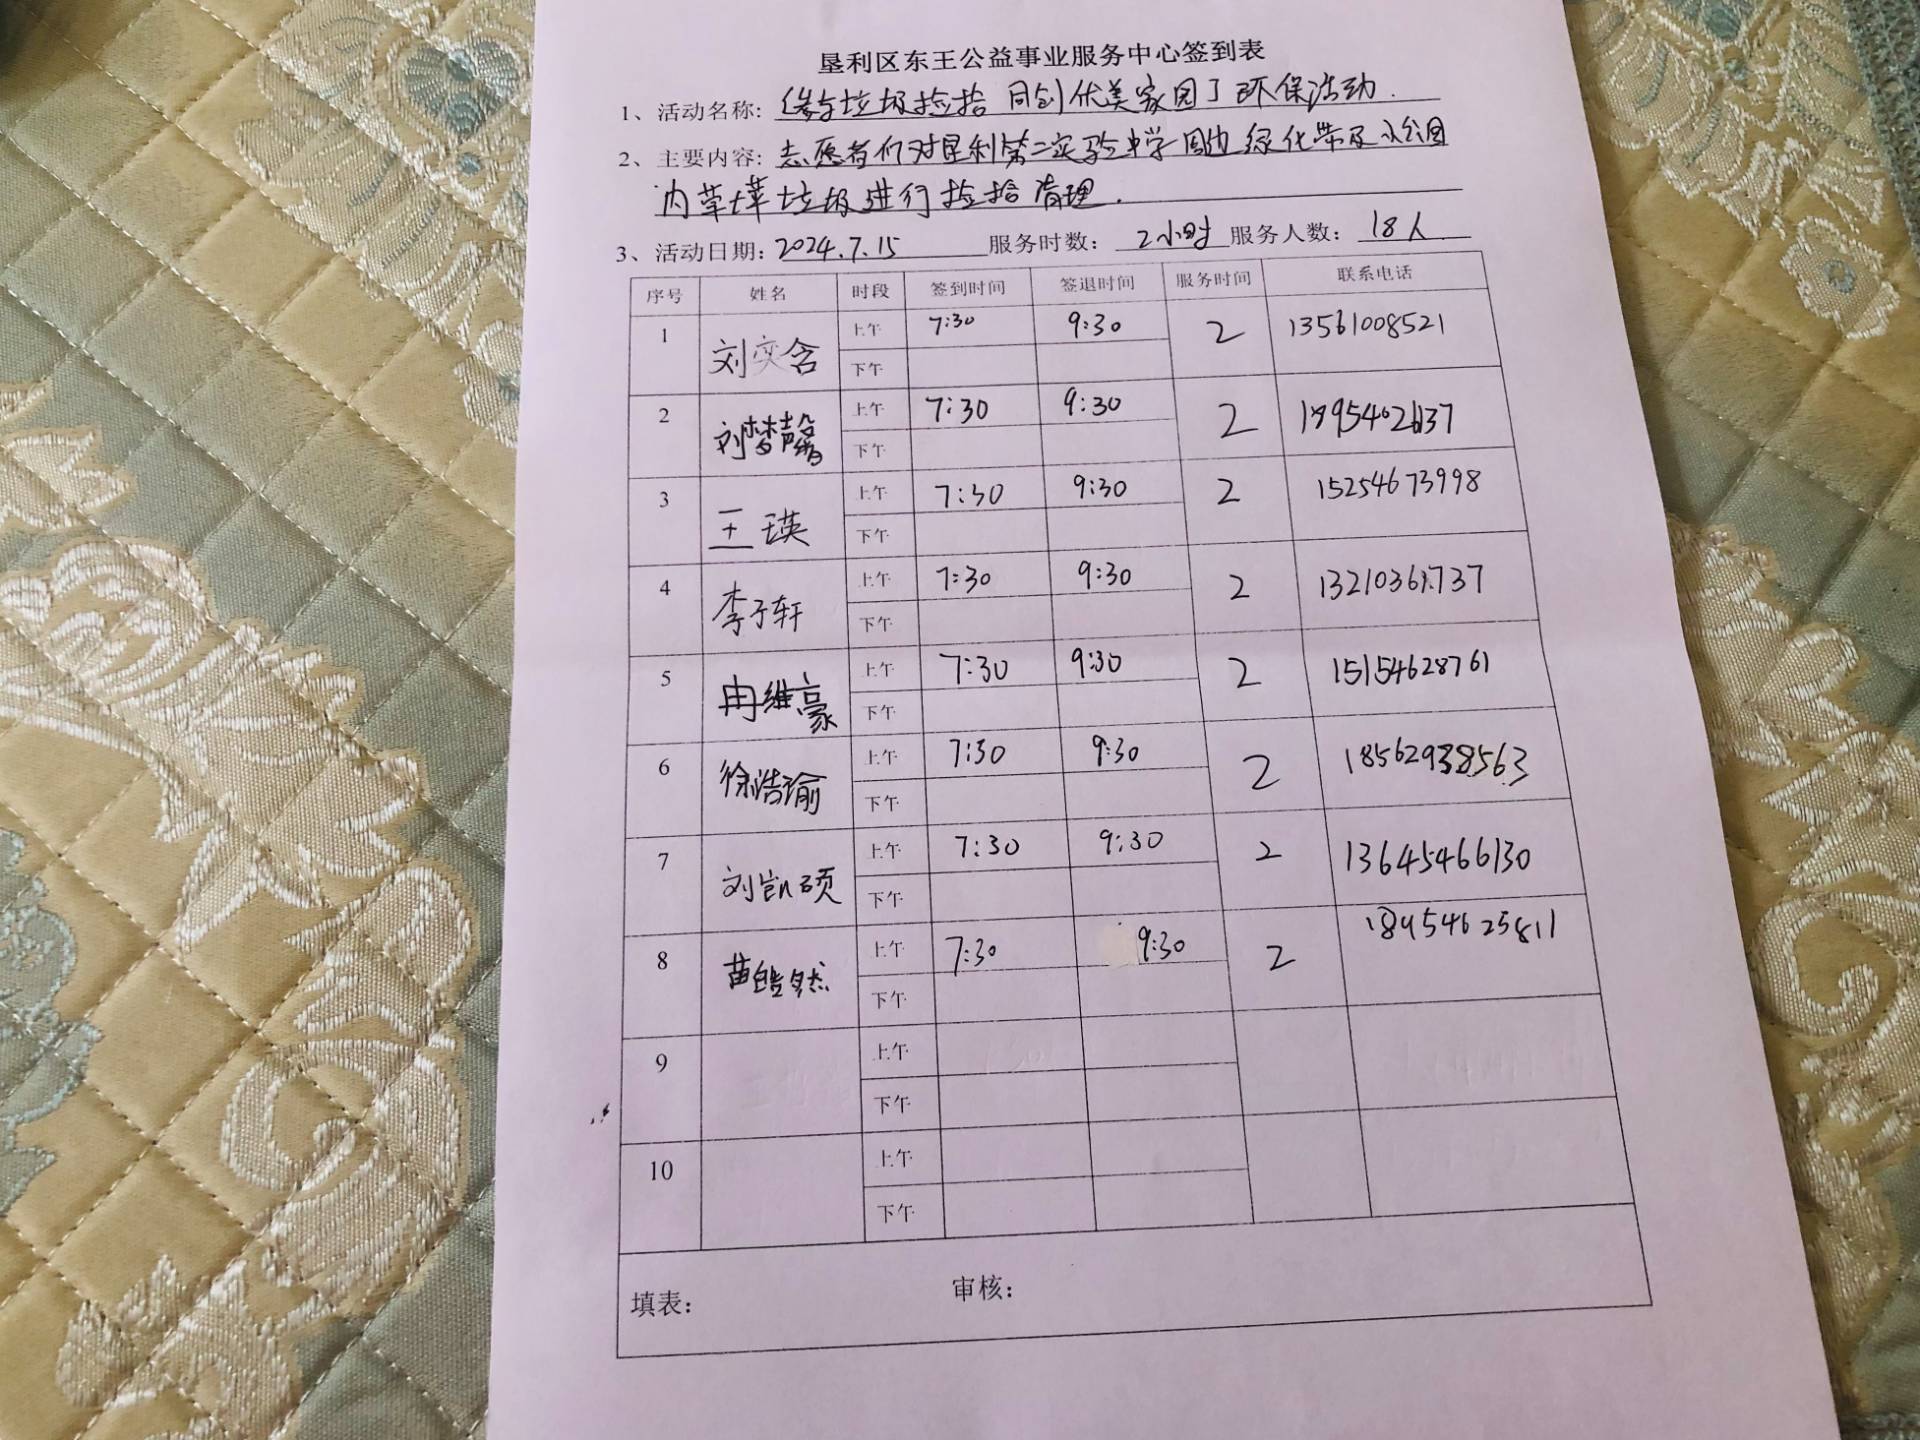 垦利区东王公益事业服务中心签到表
1、活动名称: 参与垃圾捡拾 同创优美家园了环保活动.
2、主要内容: 志愿者们对垦利第二实验中学周边绿化带及小公园
内草坪垃圾进行捡拾清理.
3、活动日期: 2024.7.15 服务时数: 2小时 服务人数: 18人
序号 姓名 时段 签到时间 签退时间 服务时间 联系电话
1 刘奕含 上午 7:30 9:30 2 13561008521
下午
2 刘梦馨 上午 7:30 9:30 2
下午
3 王瑛 上午 7:30 9:30 2 15254673998
下午
4 李子轩 上午 7:30 9:30 2
下午
5 冉维豪 上午 7:30 9:30 2 15154628761
下午
6 徐浩瑜 上午 7:30 9:30 2
下午
7 刘凯硕 上午 7:30 9:30 2 13645466130
下午
8 苗皓然 上午 7:30 9:30 2 18954625811
下午
9 上午
下午
10 上午
下午
填表: 审核: